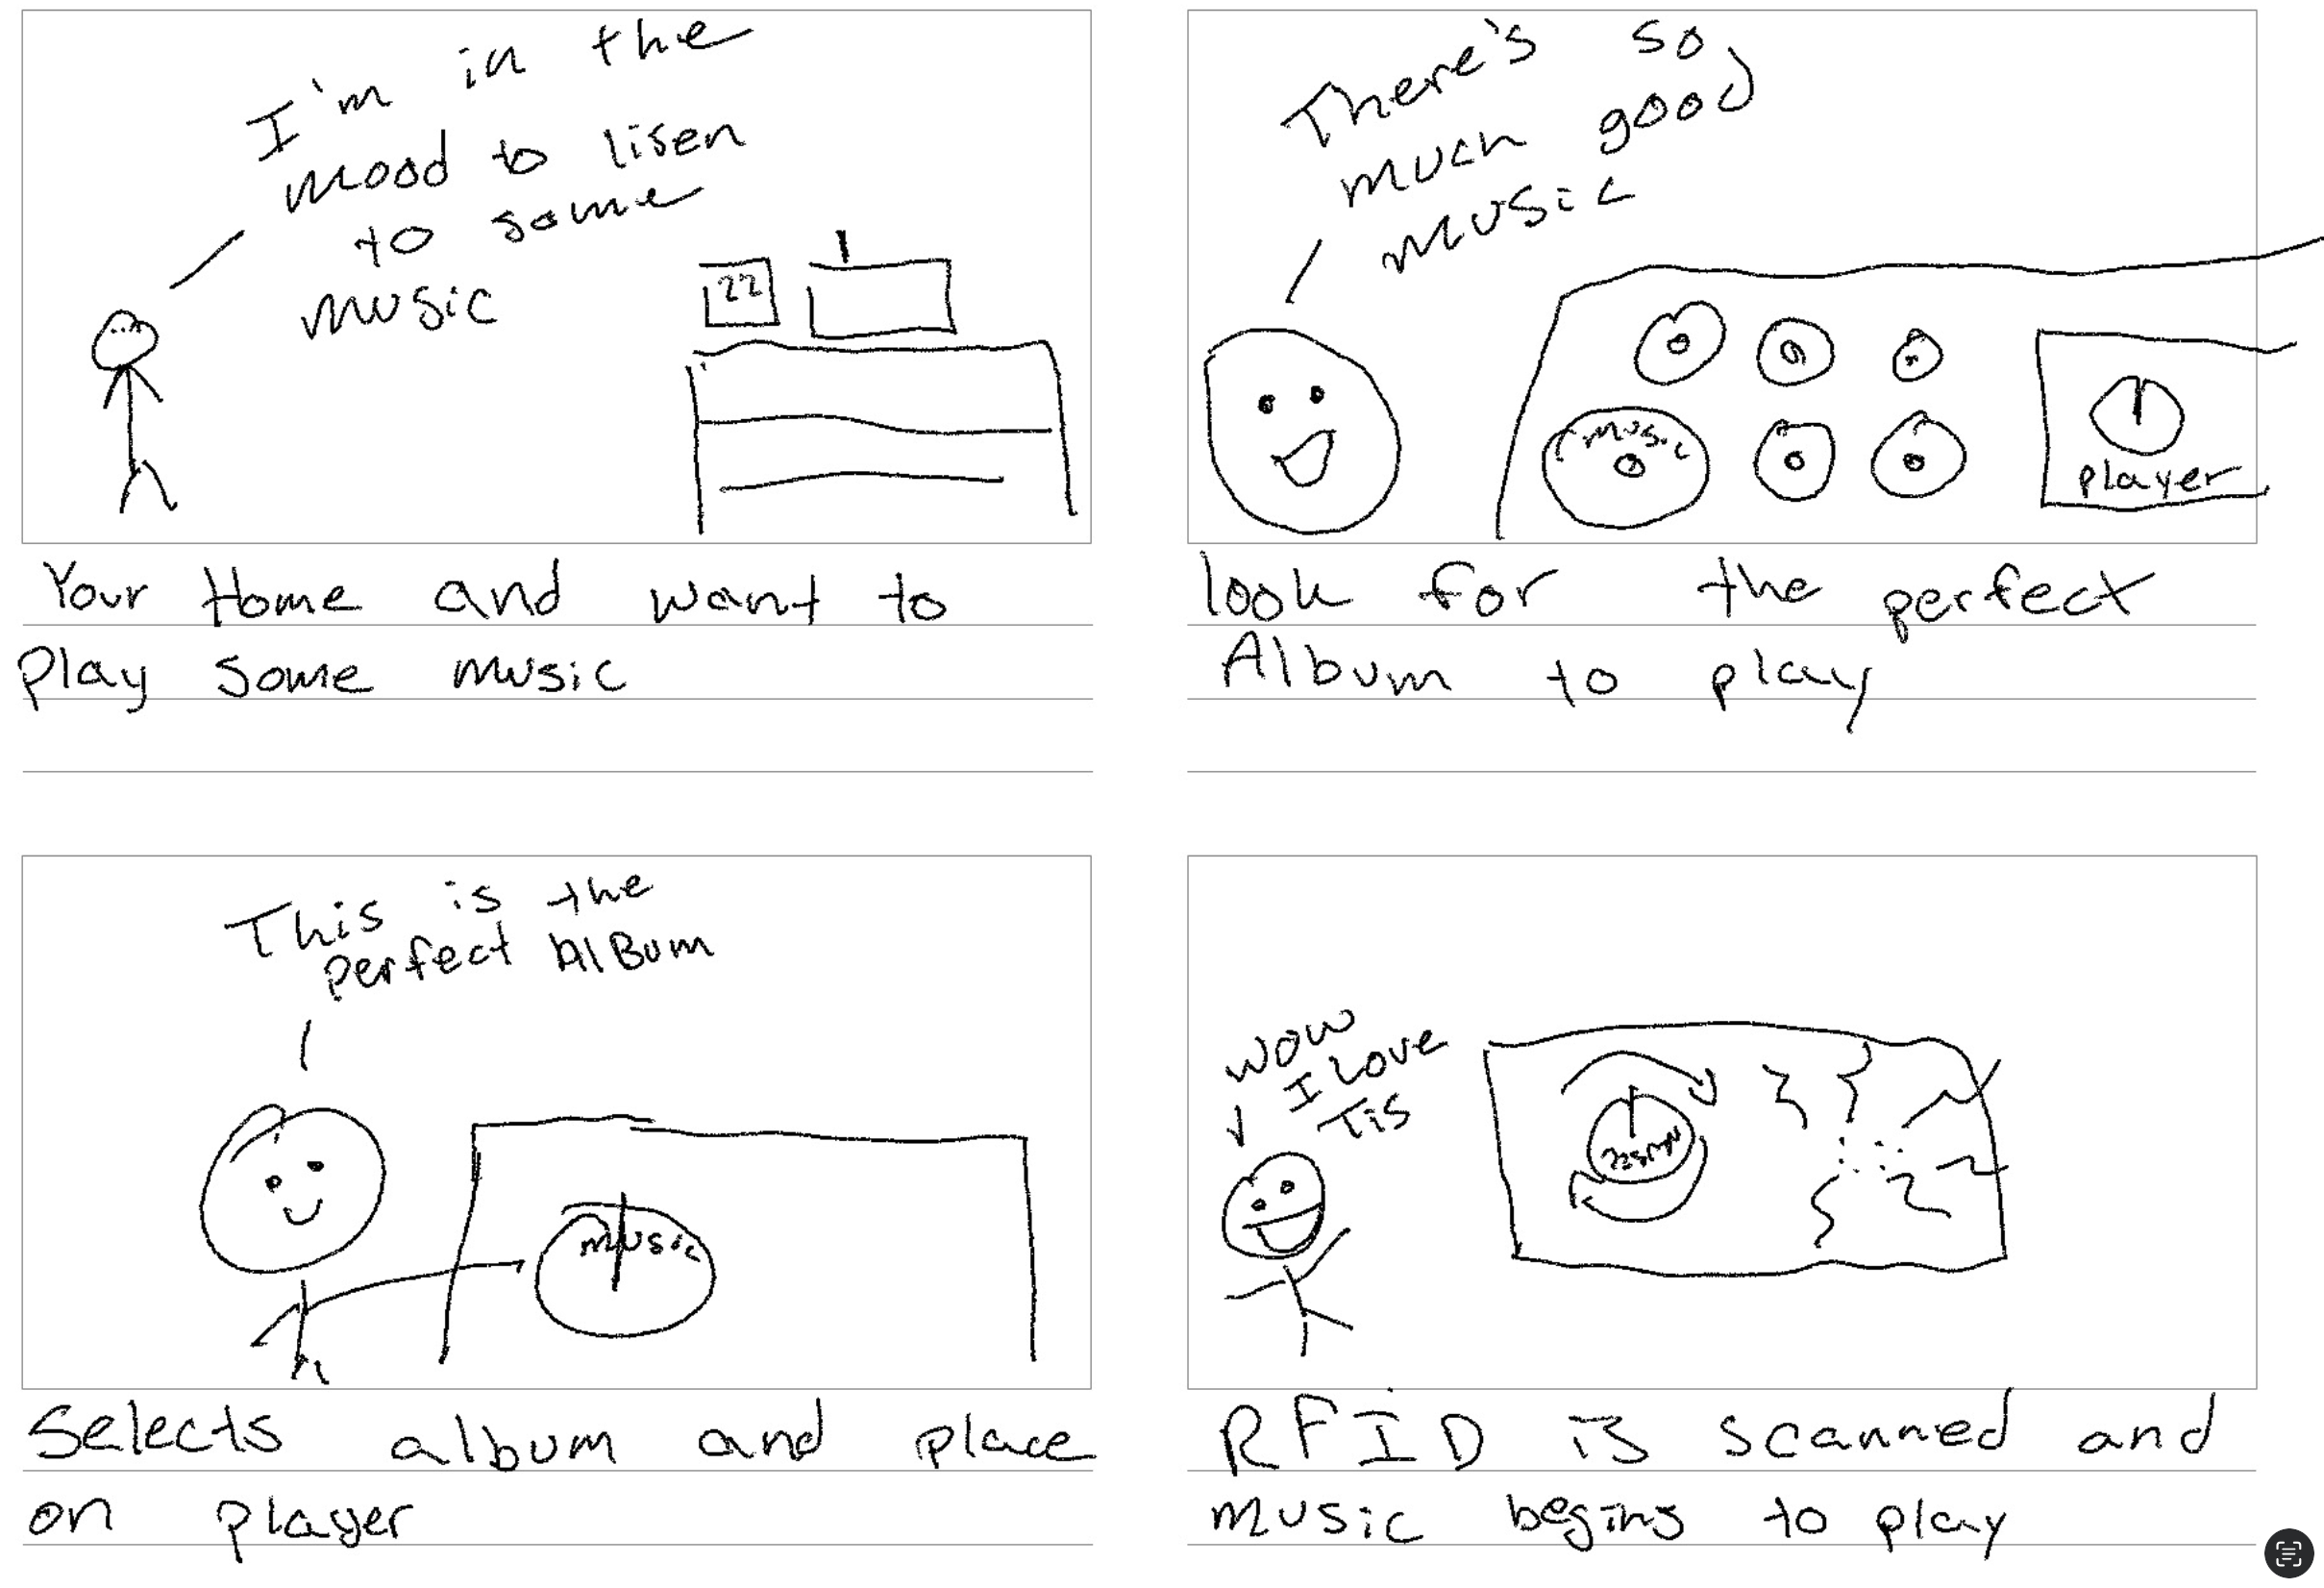 I'm in the
mood to lisen
to some
music
22
Your Home and want to
Play some music
There's so
much good
music
music
player
look for the perfect
Album to play
This is the
perfect AlBum
music
Selects album and place
on player
wow
I Love
Tis
RFID is scanned and
music begins to play